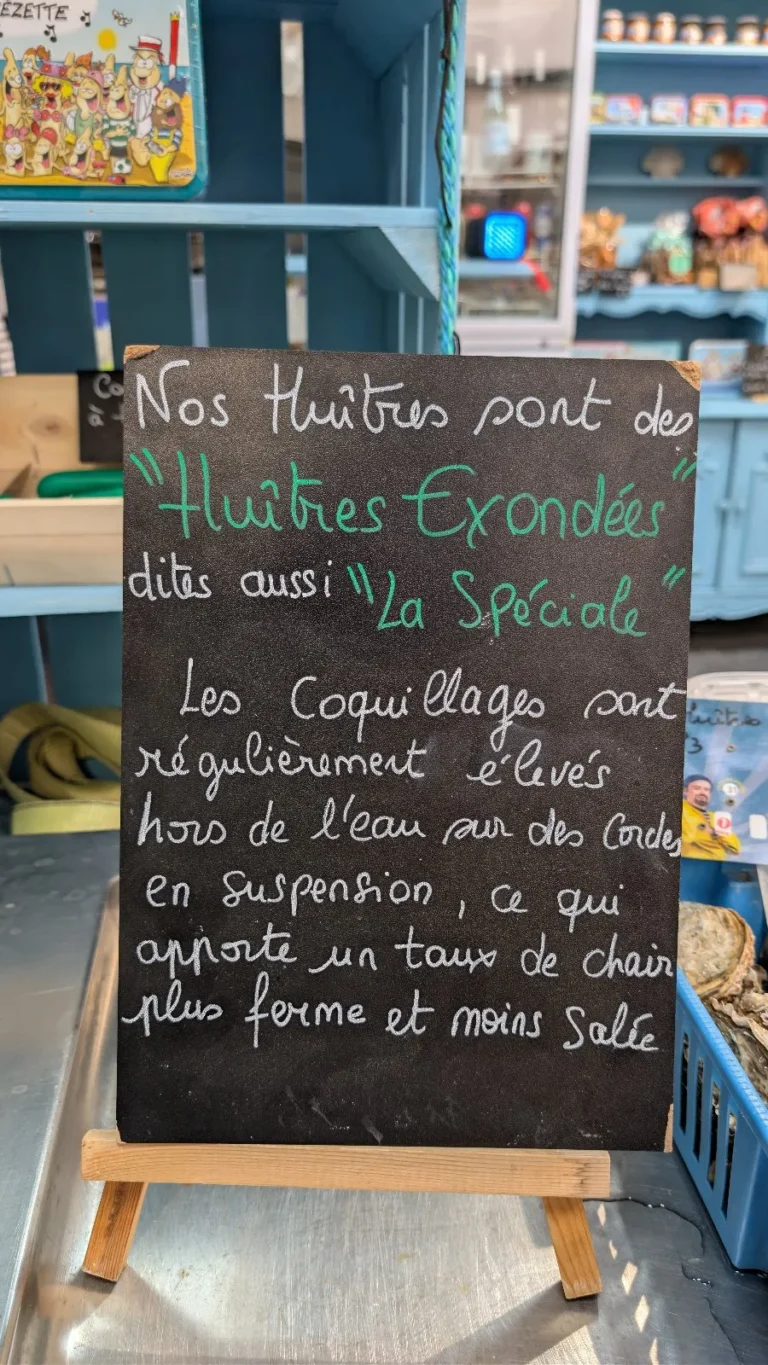 ÉZETTE
Nos Huîtres sont des
"Huîtres Exondées"
dites aussi "La Spéciale"
Les Coquillages sont
régulièrement élevés
hors de l'eau sur des Cordes
en suspension, ce qui
apporte un taux de chair
plus ferme et moins Salée
Huîtres
3